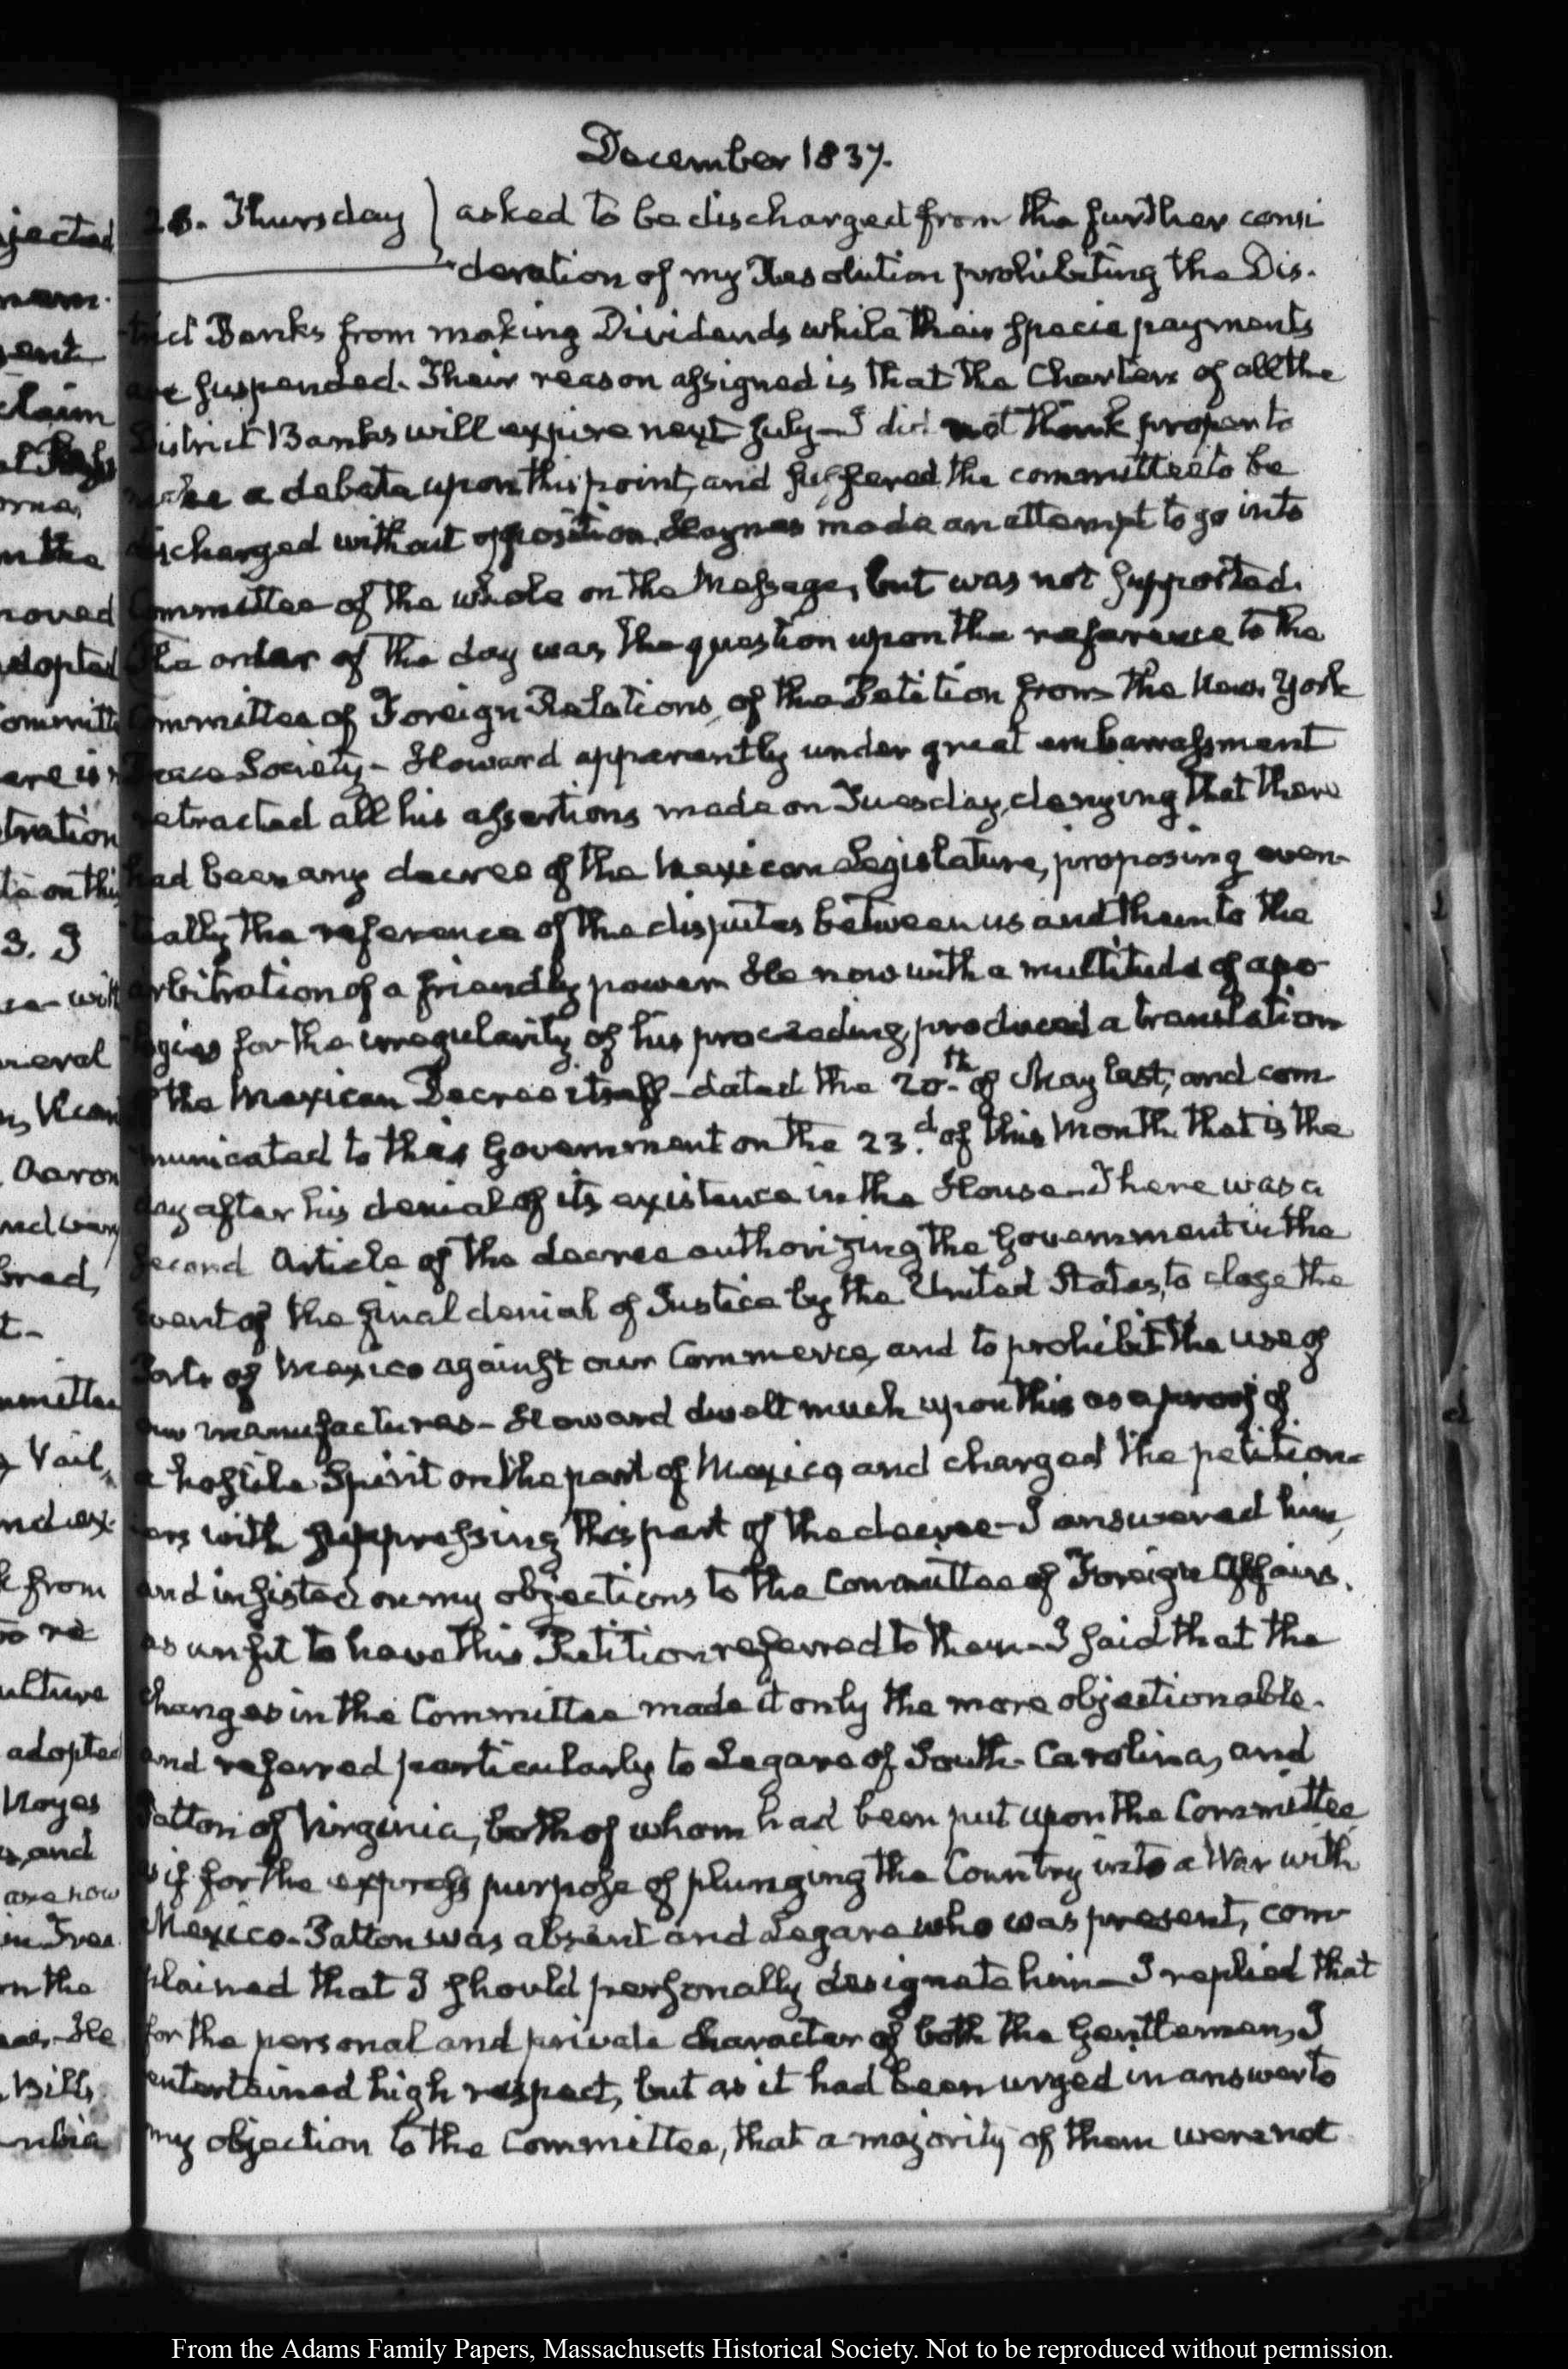 December 1837.
28. Thursday } asked to be discharged from the further consi
deration of my Resolution prohibiting the Dis-
trict Banks from making Dividends while their specie payments
are suspended. Their reason assigned is that the Charters of all the
District Banks will expire next July - I did not think proper to
make a debate upon this point, and suffered the committee to be
discharged without opposition. Haynes made an attempt to go into
Committee of the whole on the Message, but was not supported.
The order of the day was the question upon the reference to the
Committee of Foreign Relations, of the Petition from the New York
Peace Society - Howard apparently under great embarrassment
retracted all his assertions made on Tuesday, denying that there
had been any decree of the Mexican Legislature, proposing even-
tually the reference of the disputes between us and them to the
arbitration of a friendly power. He now with a multitude of apo-
logies for the irregularity of his proceeding, produced a translation
of the Mexican Decree itself - dated the 20th. of May last, and com
municated to this Government on the 23.d of this Month. that is the
day after his denial of its existence in the House - There was a
second Article of the decree authorizing the Government in the
event of the final denial of Justice by the United States, to close the
Ports of Mexico against our Commerce, and to prohibit the use of
our manufactures - Howard dwelt much upon this as a proof of
a hostile Spirit on the part of Mexico, and charged the petition-
ers with suppressing this part of the decree - I answered him,
and insisted on my objections to the Committee of Foreign Affairs.
as unfit to have this Petition referred to them - I said that the
changes in the Committee made it only the more objectionable.
and referred particularly to Legare of South-Carolina, and
Patton of Virginia, both of whom had been put upon the Committee
as if for the express purpose of plunging the Country into a War with
Mexico - Patton was absent and Legare who was present, com-
plained that I should personally designate him - I replied that
for the personal and private character of both the Gentlemen, I
entertained high respect, but as it had been urged in answer to
my objection to the Committee, that a majority of them were not
From the Adams Family Papers, Massachusetts Historical Society. Not to be reproduced without permission.